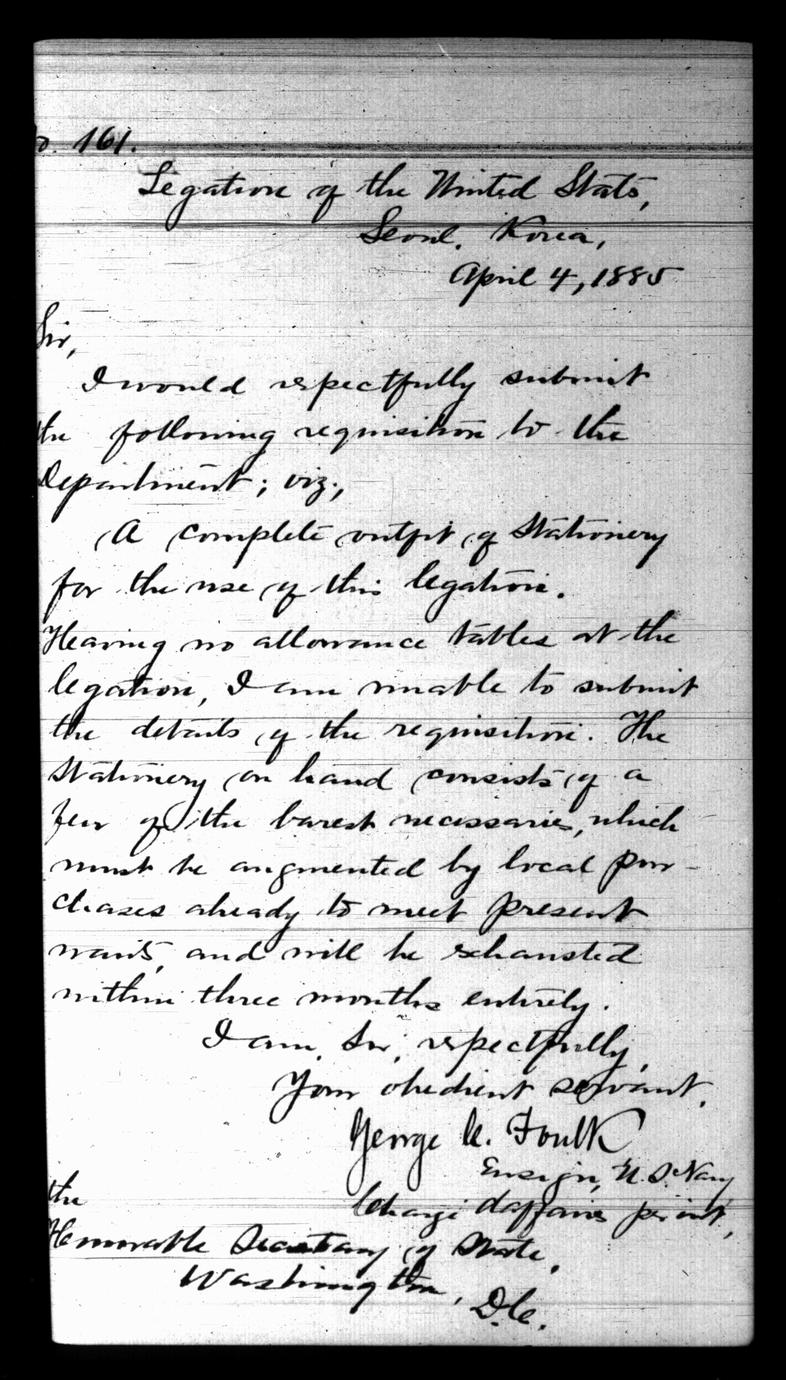 o. 161.
Legation of the United States,
Seoul, Korea,
April 4, 1885
Sir,
I would respectfully submit
the following requisition to the
Department; viz;
A complete outfit of Stationery
for the use of this legation.
Having no allowance tables at the
legation, I am unable to submit
the details of the requisition. The
Stationery on hand consists of a
few of the barest necessaries, which
must be augmented by local pur-
chases already to meet present
wants, and will be exhausted
within three months entirely.
I am, Sir, respectfully,
Your obedient servant,
George C. Foulk
Ensign, U.S. Navy
Chargé d'affaires per int,
the
Honorable Secretary of State,
Washington, D.C.